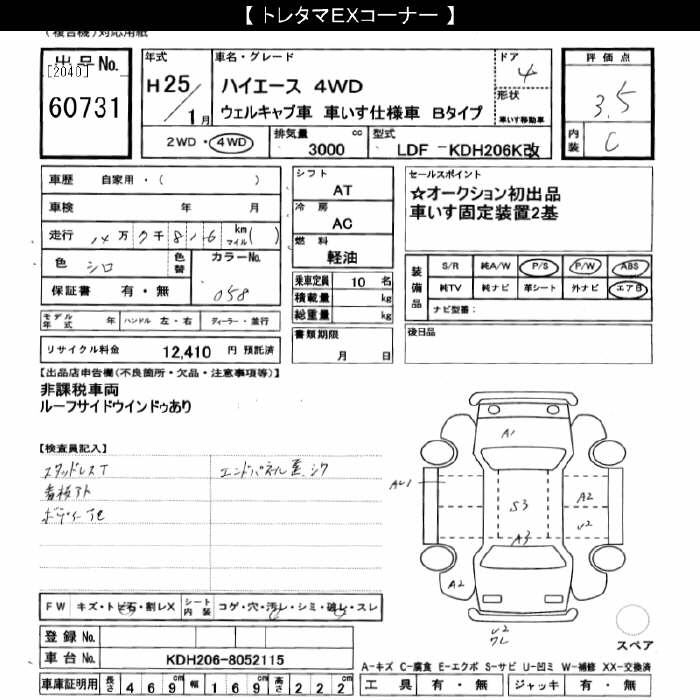 【 トレタマEXコーナー 】
(複合機)対応用紙
出品No.
[2040]
60731
年式
H25/1月
車名・グレード
ハイエース 4WD
ウェルキャブ車 車いす仕様車 Bタイプ
ドア
4
形状
車いす移動車
2WD・4WD
排気量
3000 cc
型式
LDF -KDH206K改
評価点
3.5
内装
C
車歴 自家用・( )
車検 年 月
走行 14万7千816 km マイル( )
色 シロ
色替
カラーNo.
058
保証書 有・無
モデル年式 年
ハンドル 左・右
ディーラー・並行
リサイクル料金 12,410 円 預託済
シフト
AT
冷房
AC
燃料
軽油
乗車定員 10 名
積載量 kg
総重量 kg
書類期限
月 日
セールスポイント
☆オークション初出品
車いす固定装置2基
装備品
S/R 純A/W P/S P/W ABS
純TV 純ナビ 革シート 外ナビ エアB
ナビ型番:
後日品
【出品店申告欄(不良箇所・欠品・注意事項等)】
非課税車両
ルーフサイドウインドゥあり
【検査員記入】
スタッドレスT
看板アト
エンドパネル歪、シワ
A1
AU1
S3
A3
A2
U2
A2
U2
ワレ
スペア
FW キズ・トビ石・割レX
シート内装 コゲ・穴・汚レ・シミ・破レ・スレ
登録No.
車台No. KDH206-8052115
車庫証明用 長さ 469cm 幅 169cm 高さ 222cm
A-キズ C-腐食 E-エクボ S-サビ U-凹ミ W-補修 XX-交換済
工具 有・無 ジャッキ 有・無